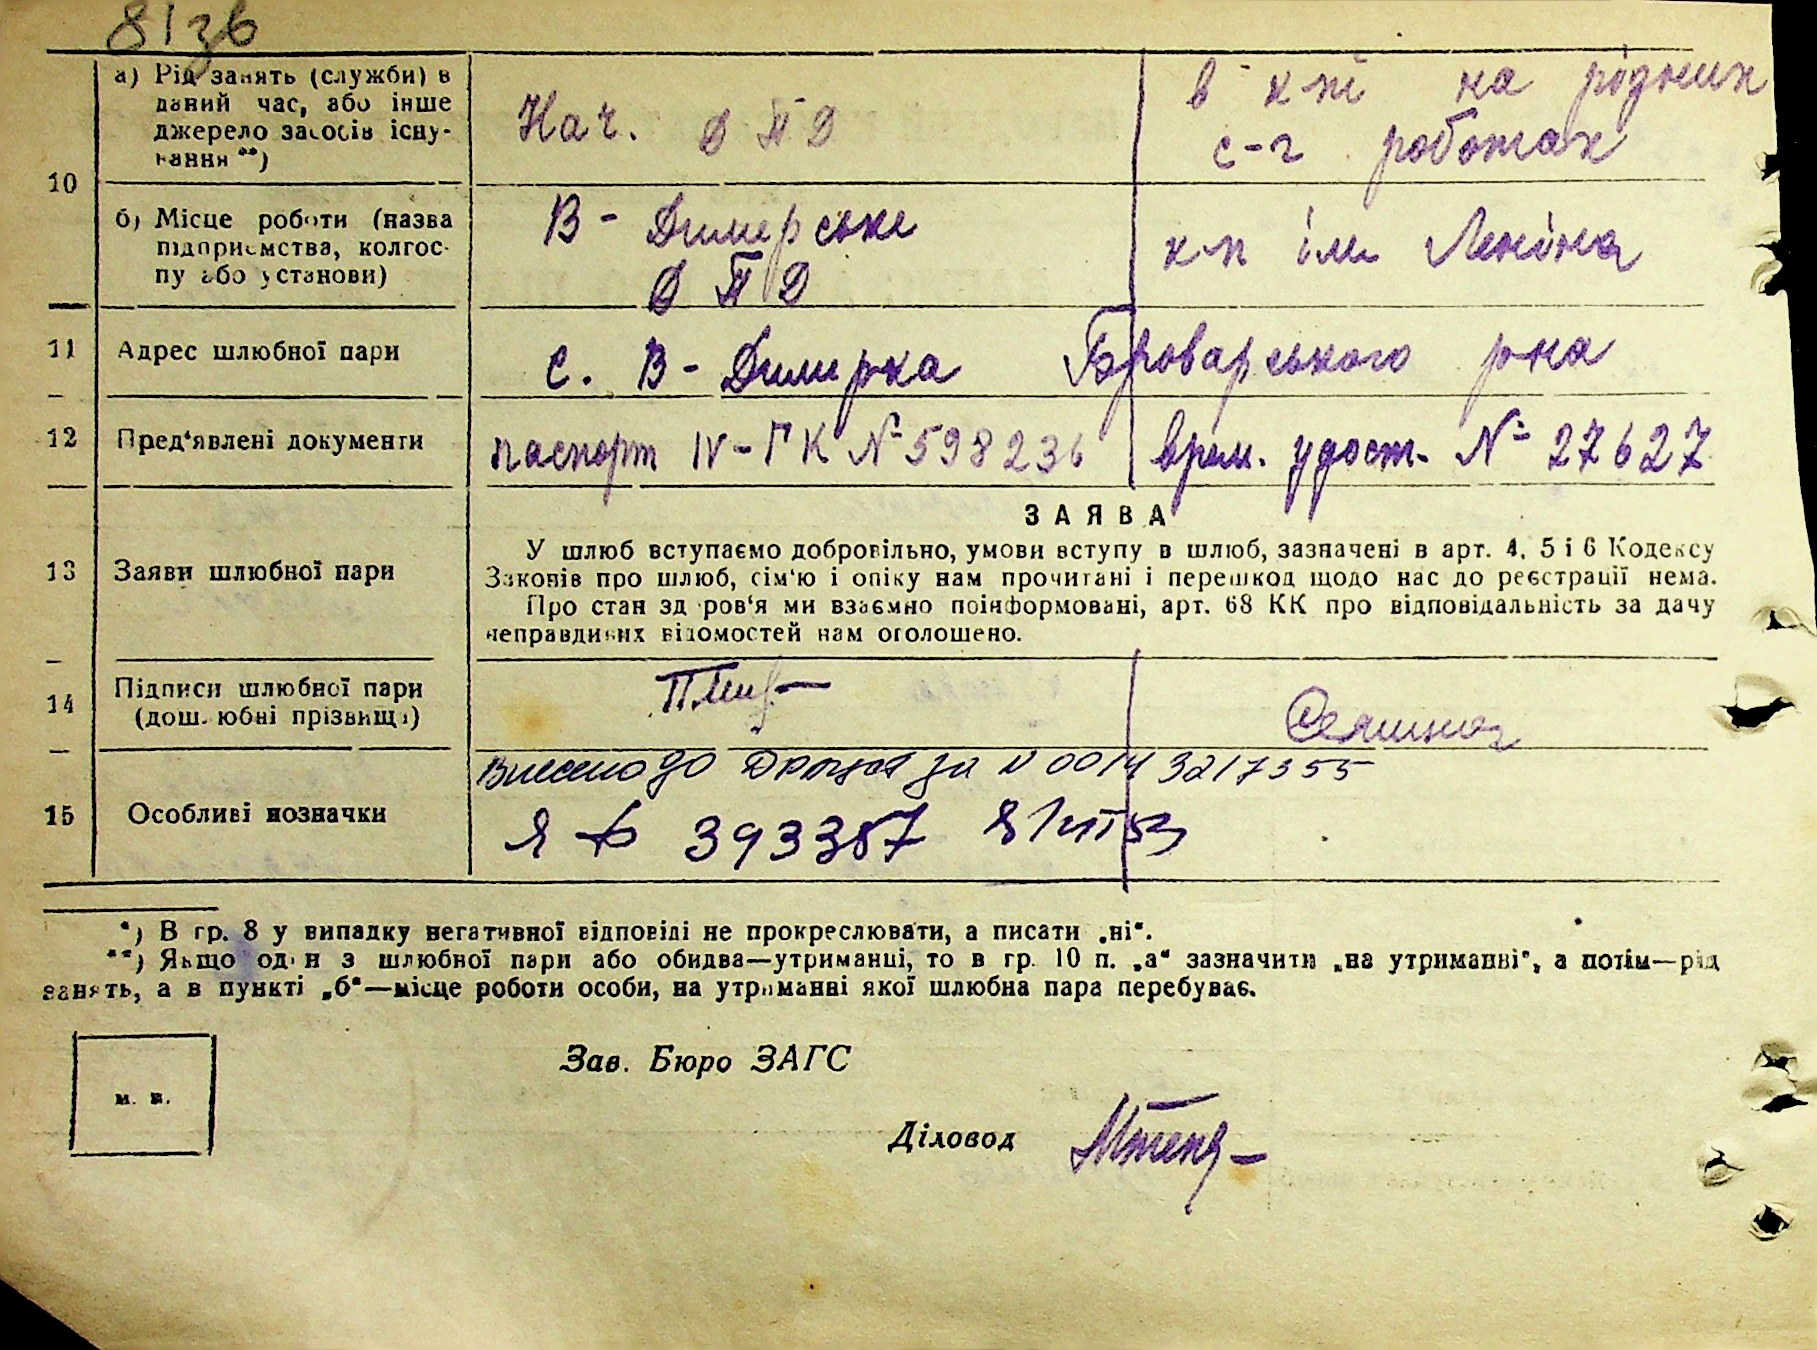 81зв
а) Рід занять (служби) в даний час, або інше джерело засобів існування **)
Нач. Д П Д
в к-пі на рідних с-г роботах
10
б) Місце роботи (назва підприємства, колгоспу або установи)
В - Димерське Д П Д
к-п ім Леніна
11 Адрес шлюбної пари
с. В - Димерка Броварського р-на
12 Пред'явлені документи
паспорт IV-ГК № 598236
врем. удост. № 27627
13 Заяви шлюбної пари
ЗАЯВА
У шлюб вступаємо добровільно, умови вступу в шлюб, зазначені в арт. 4, 5 і 6 Кодексу
Законів про шлюб, сім'ю і опіку нам прочитані і перешкод щодо нас до реєстрації нема.
Про стан здоров'я ми взаємно поінформовані, арт. 68 КК про відповідальність за дачу
неправдивих відомостей нам оголошено.
14 Підписи шлюбної пари (дошлюбні прізвища)
15 Особливі позначки
Внесено до ДРАЦСГ за N 00143217355
Я 393387
*) В гр. 8 у випадку негативної відповіді не прокреслювати, а писати „ні“.
**) Якщо один з шлюбної пари або обидва—утриманці, то в гр. 10 п. „а“ зазначити „на утриманні“, а потім—рід
занять, а в пункті „б“—місце роботи особи, на утриманні якої шлюбна пара перебуває.
Зав. Бюро ЗАГС
м. п.
Діловод